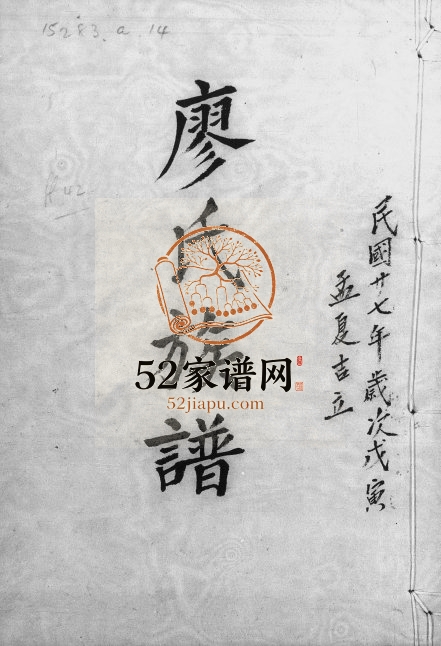 15283.a.14
廖氏族譜
民國廿七年歲次戊寅
孟夏吉立
52家谱网
52jiapu.com